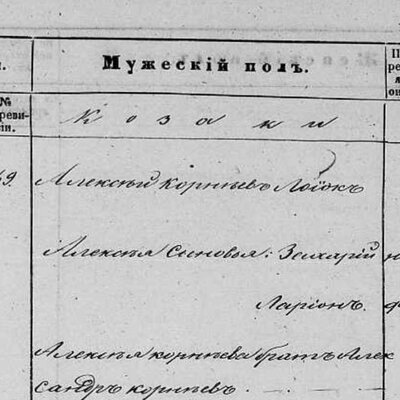 Мужескій полъ.
№
реви-
сіи.
Козаки
Алексѣй Корнѣевъ Лоіок
Алексѣя Сыновья: Захарій
Ларіонъ.
Алексѣя корнѣева братъ Алек
сандръ корнѣевъ